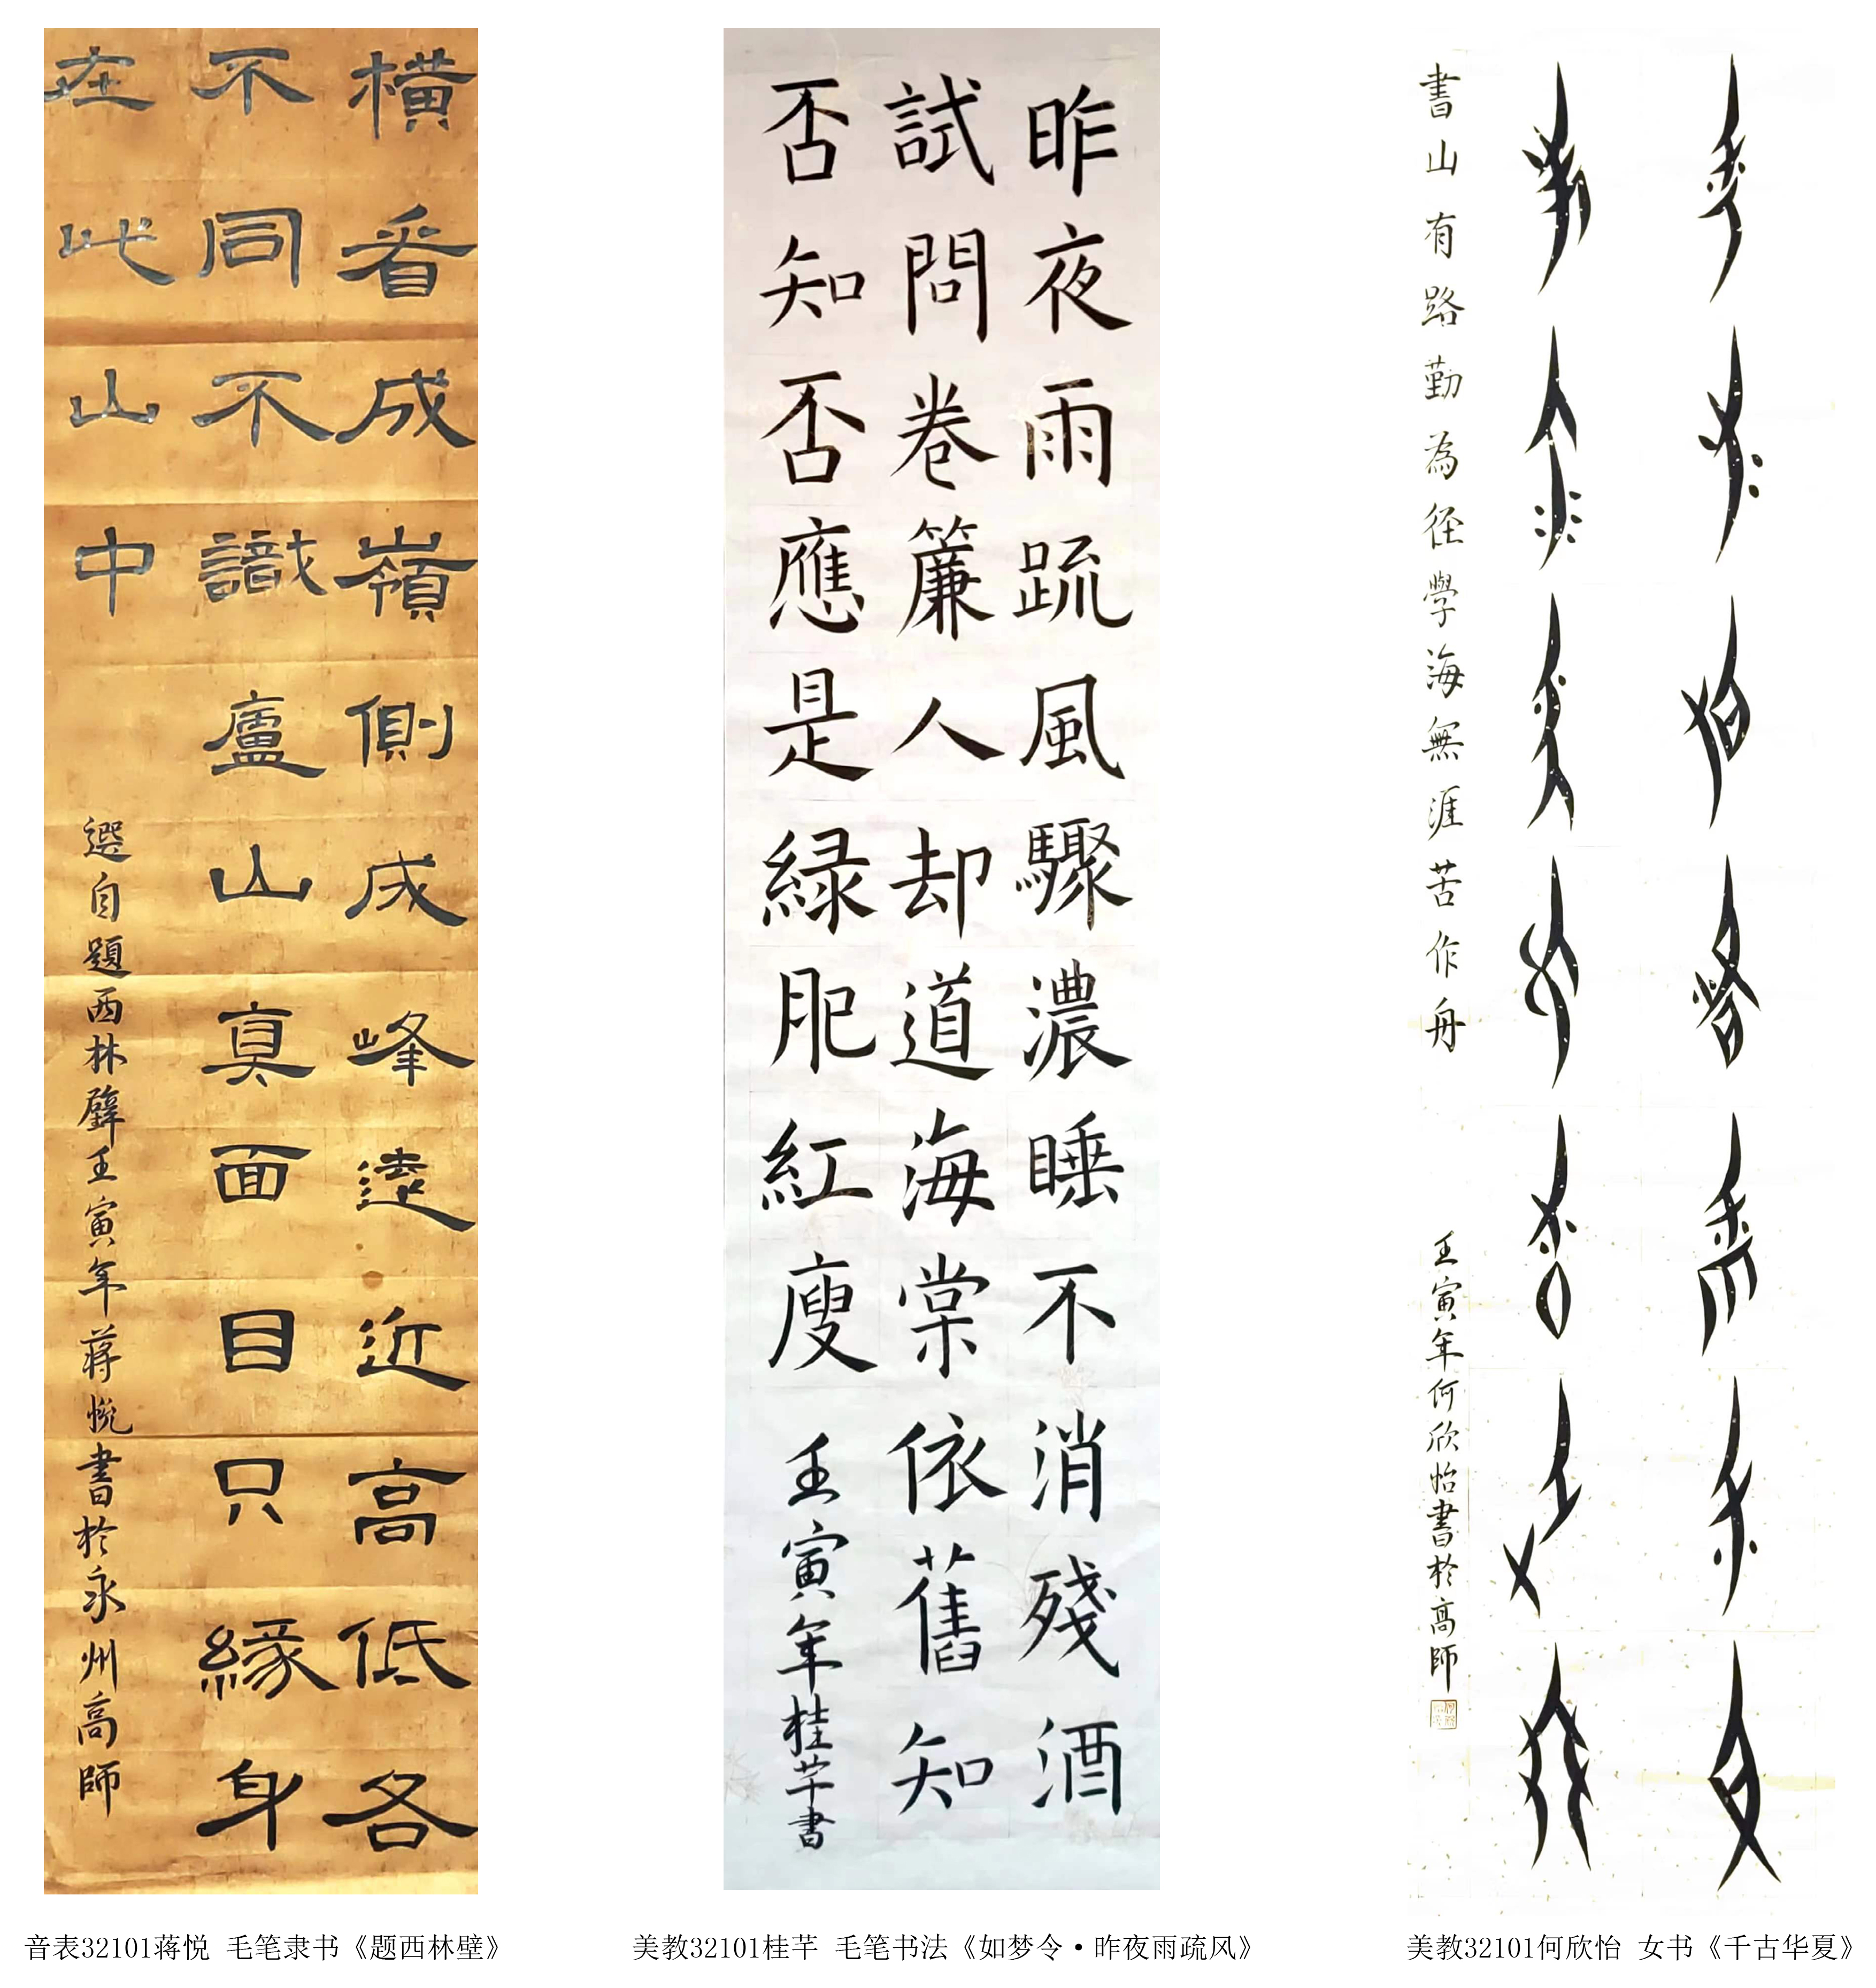 横看成嶺側成峰遠近高低各
不同不識廬山真面目只緣身
在此山中
選自題西林壁壬寅年蒋悦書於永州高師
昨夜雨疏風驟濃睡不消殘酒
試問卷簾人却道海棠依舊知
否知否應是緑肥紅廋
壬寅年桂芊書
書山有路勤為径學海無涯苦作舟
壬寅年何欣怡書於高師
音表32101蒋悦 毛笔隶书《题西林壁》
美教32101桂芊 毛笔书法《如梦令·昨夜雨疏风》
美教32101何欣怡 女书《千古华夏》